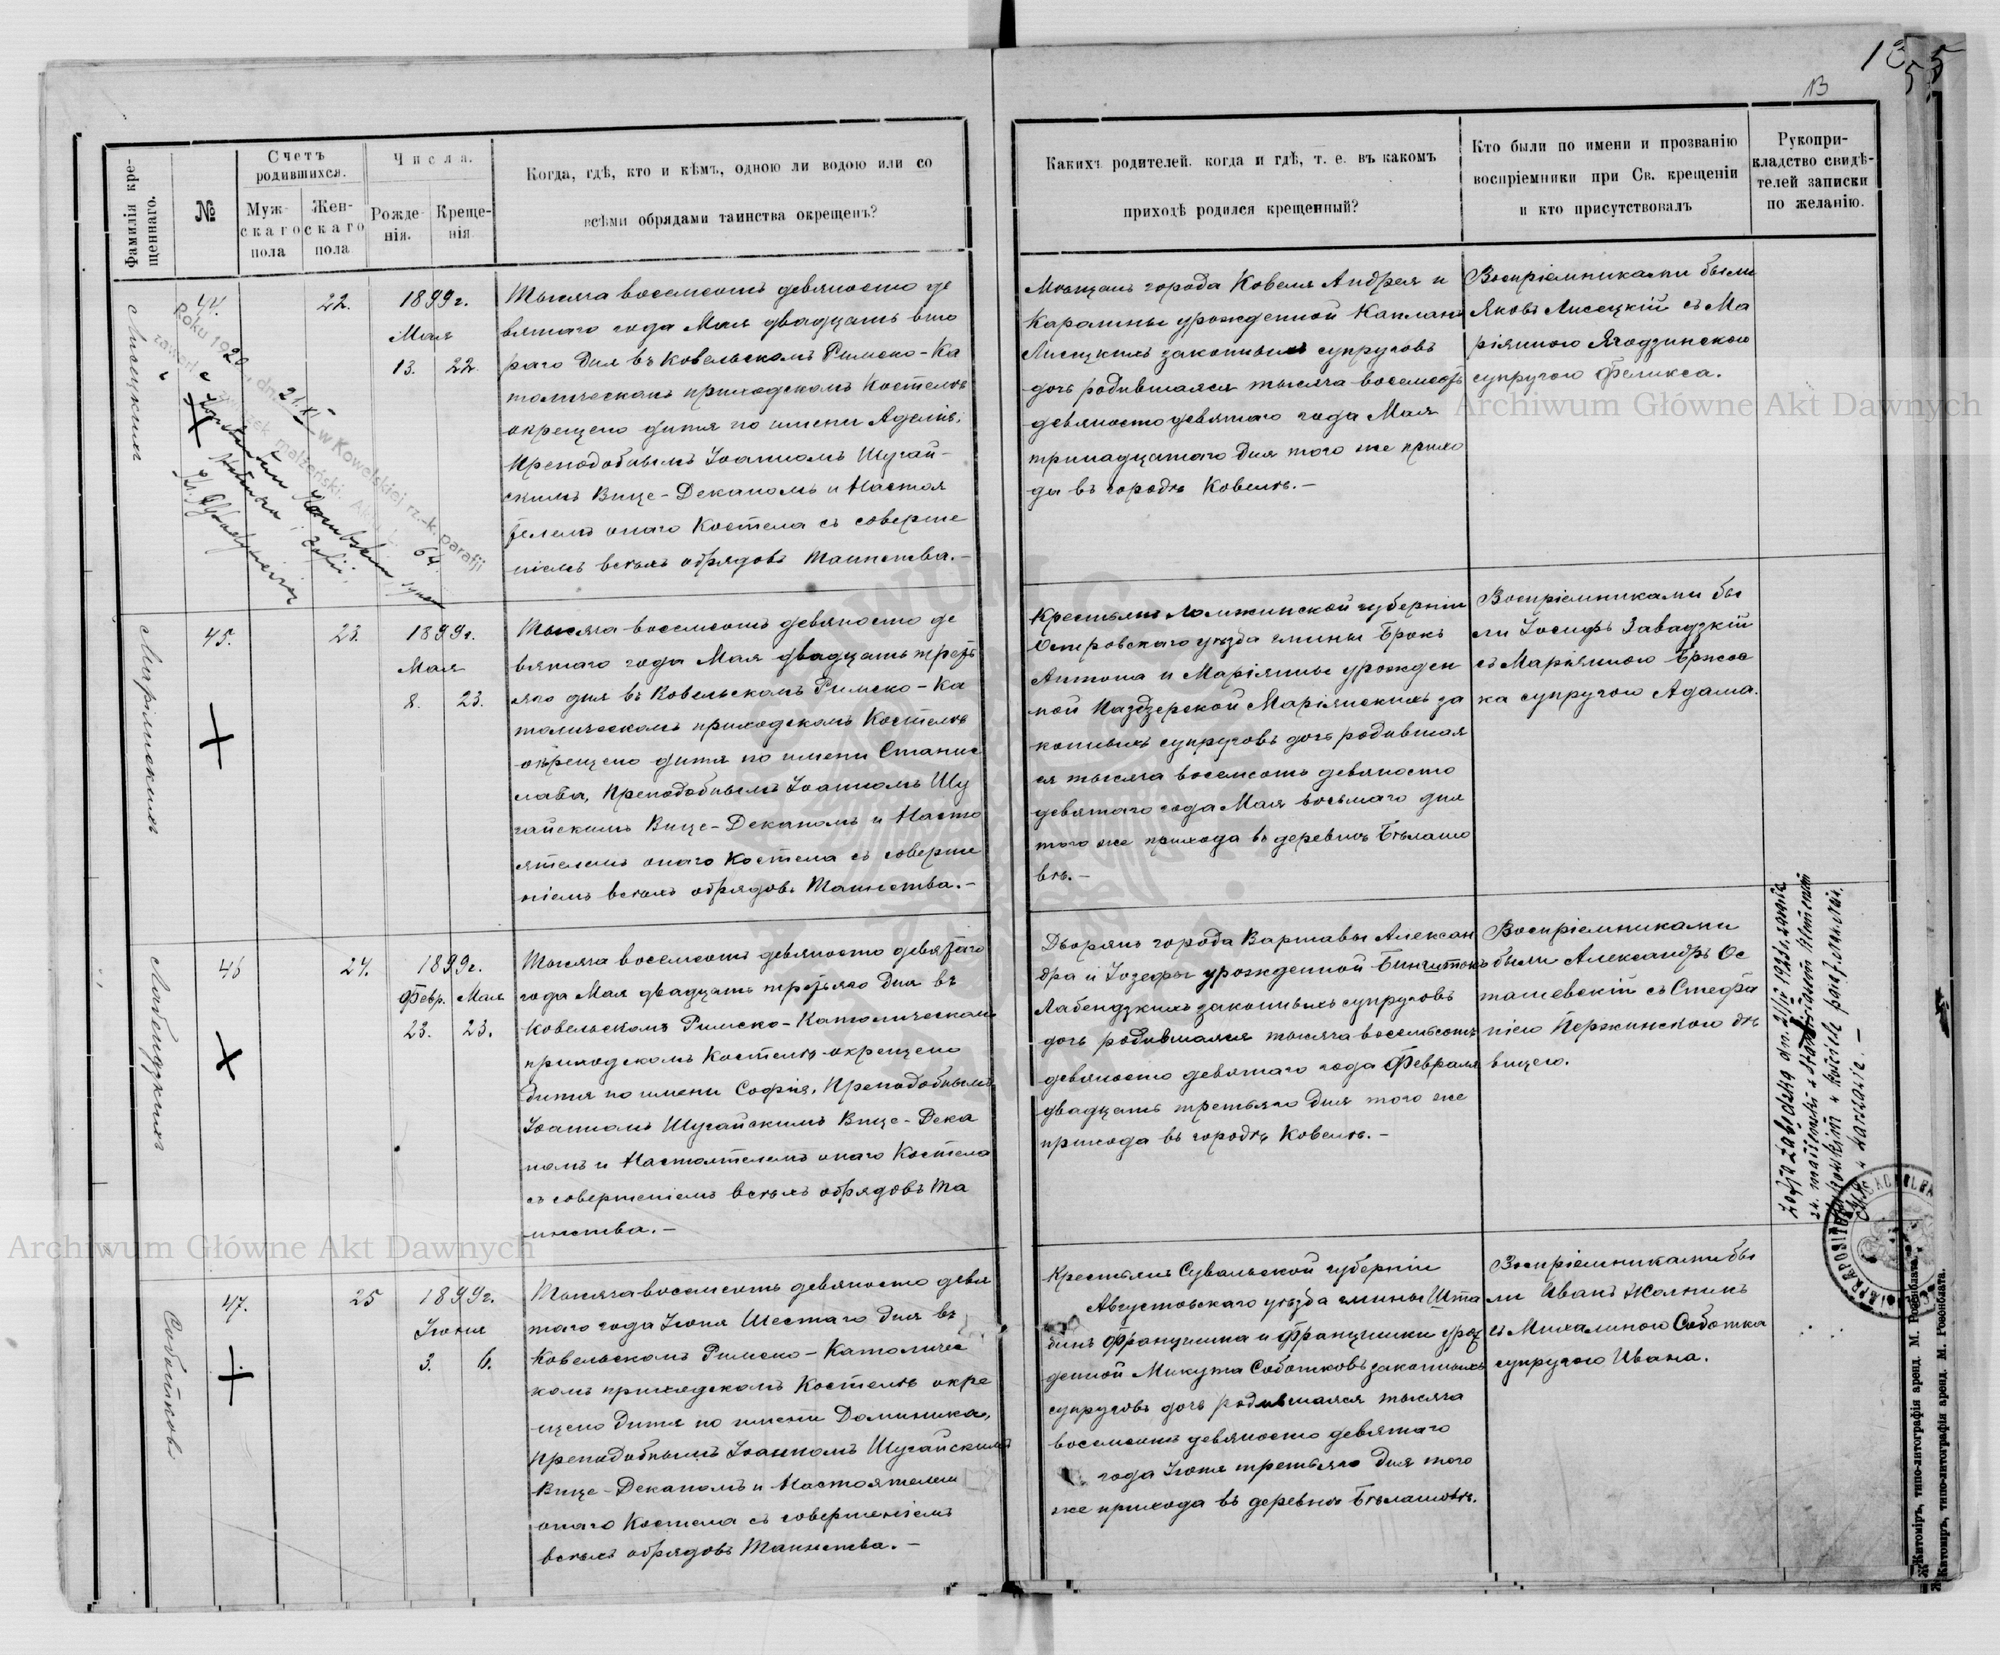 13
Фамилія кре-
щеннаго.
№
Счетъ
родившихся.
Муж-
скаго
пола
Жен-
скаго
пола
Числа.
Рожде-
нія.
Креще-
нія
Когда, гдѣ, кто и кѣмъ, одною ли водою или со
всѣми обрядами таинства окрещенъ?
Какихъ родителей, когда и гдѣ, т. е. въ какомъ
приходѣ родился крещенный?
Кто были по имени и прозванію
воспріемники при Св. крещеніи
и кто присутствовалъ
Рукопри-
кладство свидѣ-
телей записки
по желанію.
44.
22.
1899 г.
Мая
13. 22.
Тысяча восемсотъ девяносто де
вятаго года Мая двадцать вто
раго дня въ Ковельскомъ Римско-Ка
толическомъ приходскомъ Костелѣ
окрещено дитя по имени Аделя,
Преподобнымъ Іоанномъ Шугай-
скимъ Вице-Деканомъ и Настоя
телемъ онаго Костела съ соверше
ніемъ всѣхъ обрядовъ Таинства.-
Мѣщанъ города Ковеля Андрея и
Каролины урожденной Капланъ
Лисецкихъ законныхъ супруговъ
дочь родившаяся тысяча восемсотъ
девяносто девятаго года Мая
тринадцатаго дня того же прихо
да въ городѣ Ковелѣ.-
Воспріемниками были
Яковъ Лисецкій съ Ма
ріянною Ягодзинскою
супругою Феликса.
Лисецкихъ
Roku 1920, dnia 21.XI w Kowelskiej rz.-k. parafji
zawarł związek małżeński. Akt 64
Мирьянскихъ
45.
23.
1899 г.
Мая
8. 23.
Тысяча восемсотъ девяносто де
вятаго года Мая двадцать треть
яго дня въ Ковельскомъ Римско-Ка
толическомъ приходскомъ Костелѣ
окрещено дитя по имени Станис
лава, Преподобнымъ Іоанномъ Шу
гайскимъ Вице-Деканомъ и Насто
ятелемъ онаго Костела съ соверше
ніемъ всѣхъ обрядовъ Таинства.-
Крестьянъ Ломжинской губерніи
Островскаго уѣзда гмины Брокъ
Антона и Маріянны урожден
ной Наздзерской Маріянскихъ за
конныхъ супруговъ дочь родившая
ся тысяча восемсотъ девяносто
девятаго года Мая восьмаго дня
того же прихода въ деревнѣ Бѣлашо
вѣ.-
Воспріемниками бы
ли Іосифъ Завадзкій
съ Маріянною Бржос
ка супругою Адама.
Лабендзкихъ
46
24.
1899 г.
Февр. Мая
23. 23.
Тысяча восемсотъ девяносто девятаго
года Мая двадцать третьяго дня въ
Ковельскомъ Римско-Католическомъ
приходскомъ Костелѣ окрещено
дитя по имени Софія, Преподобнымъ
Іоанномъ Шугайскимъ Вице-Дека
номъ и Настоятелемъ онаго Костела
съ совершеніемъ всѣхъ обрядовъ Та
инства.-
Дворянъ города Варшавы Алексан
дра и Іозефы урожденной
Лабендзкихъ законныхъ супруговъ
дочь родившаяся тысяча восемсотъ
девяносто девятаго года Февраля
двадцать третьяго дня того же
прихода въ городѣ Ковелѣ.-
Воспріемниками
были Александръ Ос
ташевскій съ Стефа
ніею Пержинскою дѣ
вицею.
Соботковъ
47.
25
1899 г.
Іюня
3. 6.
Тысяча восемсотъ девяносто девя
таго года Іюня Шестаго дня въ
Ковельскомъ Римско-Католичес
комъ приходскомъ Костелѣ окре
щено дитя по имени Доминика,
Преподобнымъ Іоанномъ Шугайскимъ
Вице-Деканомъ и Настоятелемъ
онаго Костела съ совершеніемъ
всѣхъ обрядовъ Таинства.-
Крестьянъ Сувальской губерніи
Августовскаго уѣзда гмины Шта
бинъ Францишка и Францишки урож
денной Микута Соботковъ законныхъ
супруговъ дочь родившаяся тысяча
восемсотъ девяносто девятаго
года Іюня третьяго дня того
же прихода въ деревнѣ Бѣлашовѣ.
Воспріемниками бы
ли Иванъ Жолникъ
съ Михалиною Соботка
супругою Ивана.
Житоміръ, типо-литографія аренд. М. Розенблата.
Житоміръ, типо-литографія аренд. М. Розенблата.
Archiwum Główne Akt Dawnych
Archiwum Główne Akt Dawnych